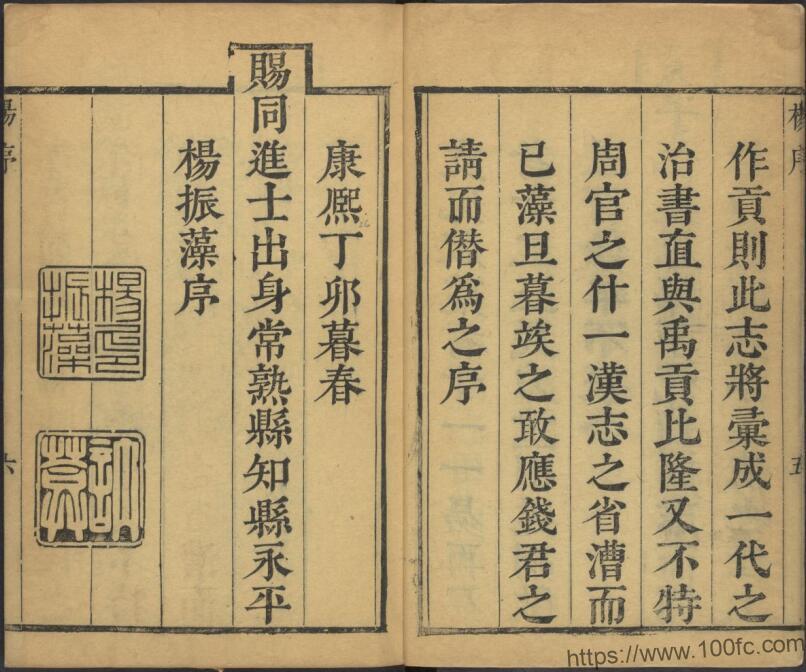 楊序
五
作貢則此志將彙成一代之
治書直與禹貢比隆又不特
周官之什一漢志之省漕而
已藻旦暮竢之敢應錢君之
請而僭爲之序
康熈丁卯暮春
賜同進士出身常熟縣知縣永平
楊振藻序
楊印
振藻
楊序
六
https://www.100fc.com